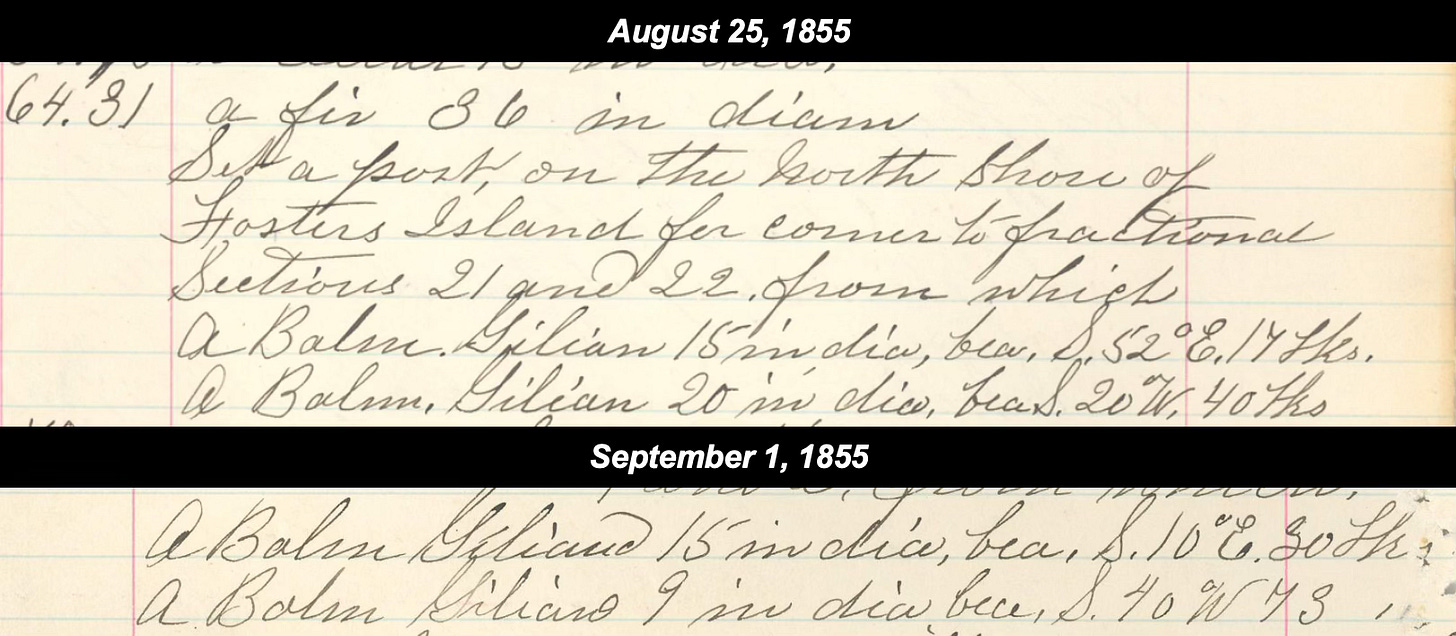 August 25, 1855
64.31 a fir 36 in diam
Set a post, on the North Shore of
Fosters Island for corner to fractional
Sections 21 and 22. from which
A Balm. Gilian 15 in dia, bea. S. 52° E. 17 lks.
A Balm. Gilian 20 in dia, bea S. 20 W. 40 lks
September 1, 1855
A Balm Giliand 15 in dia, bea, S. 10° E. 30 lks
A Balm Giliand 9 in dia, bea, S. 40 W 73